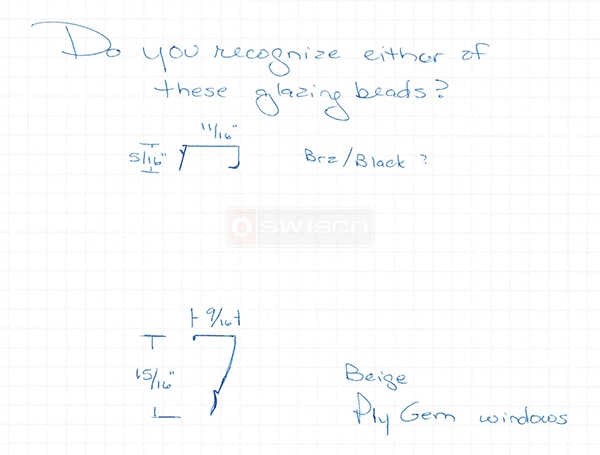 Do you recognize either of
these glazing beads?
11/16"
5/16"
Brz/Black ?
SWISCO
9/16
15/16"
Beige
Ply Gem windows